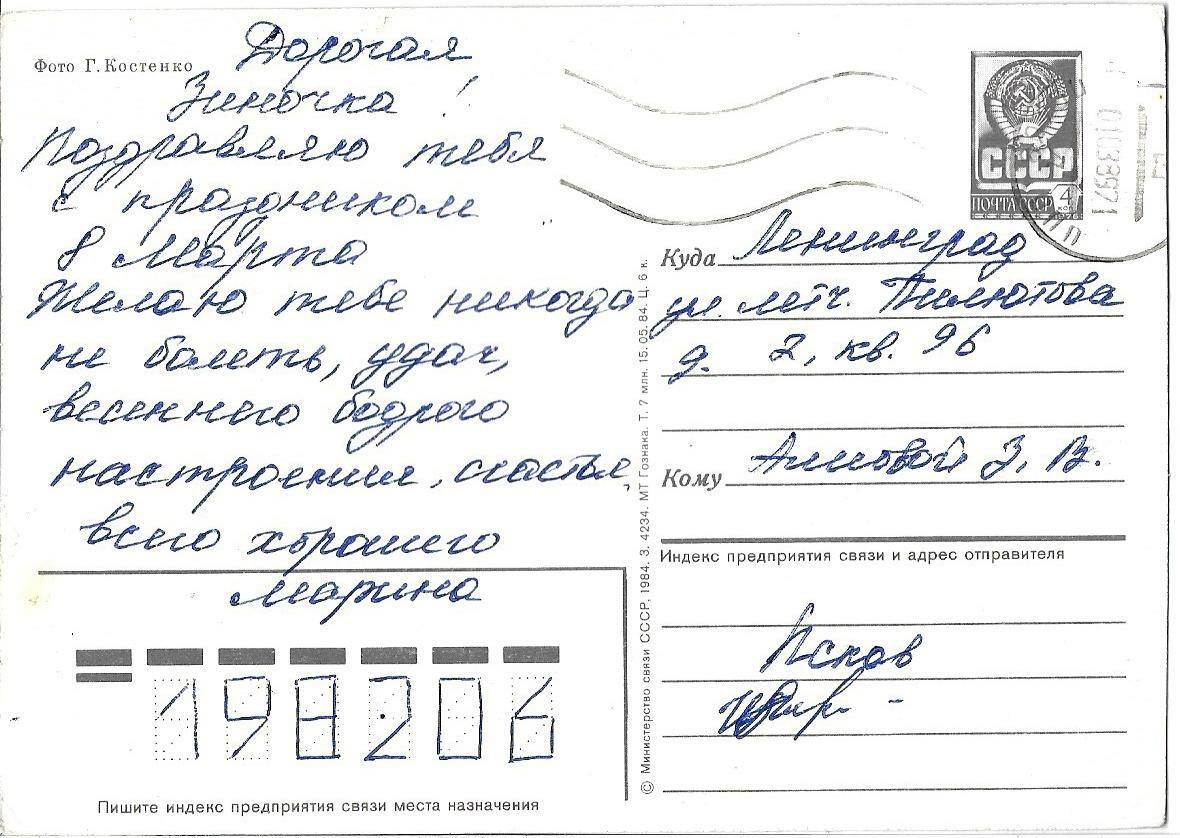 Фото Г. Костенко
Дорогая
Зиночка!
Поздравляю тебя
с праздником
8 Марта
Желаю тебе никогда
не болеть, удач,
весеннего бодрого
настроения, счастья,
всего хорошего
Марина
198206
Пишите индекс предприятия связи места назначения
© Министерство связи СССР, 1984. З. 4234. МТ Гознака. Т. 7 млн. 15.05.84. Ц. 6 к.
СССР
ПОЧТА СССР 4 КОП
1976
Куда Ленинград
ул. летч. Пилютова
д. 2, кв. 96
Кому З. В.
Индекс предприятия связи и адрес отправителя
Псков